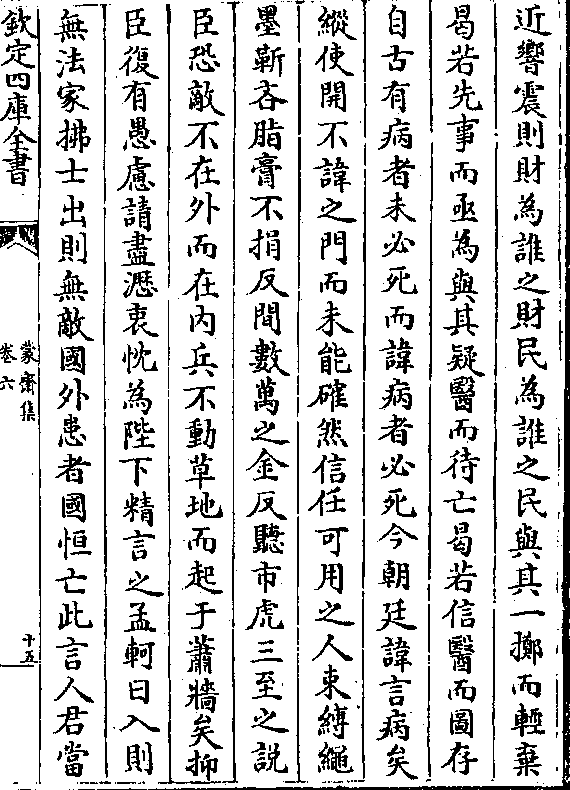 近響震則財為誰之財民為誰之民與其一擲而輕棄
曷若先事而亟為與其疑醫而待亡曷若信醫而圖存
自古有病者未必死而諱病者必死今朝廷諱言病矣
縱使開不諱之門而未能確然信任可用之人束縛繩
墨靳吝脂膏不捐反間數萬之金反聽市虎三至之説
臣恐敵不在外而在内兵不動草地而起于蕭牆矣抑
臣復有愚慮請盡瀝衷忱為陛下精言之孟軻曰入則
無法家拂士出則無敵國外患者國恒亡此言人君當
欽定四庫全書
蒙齋集
卷六
十五